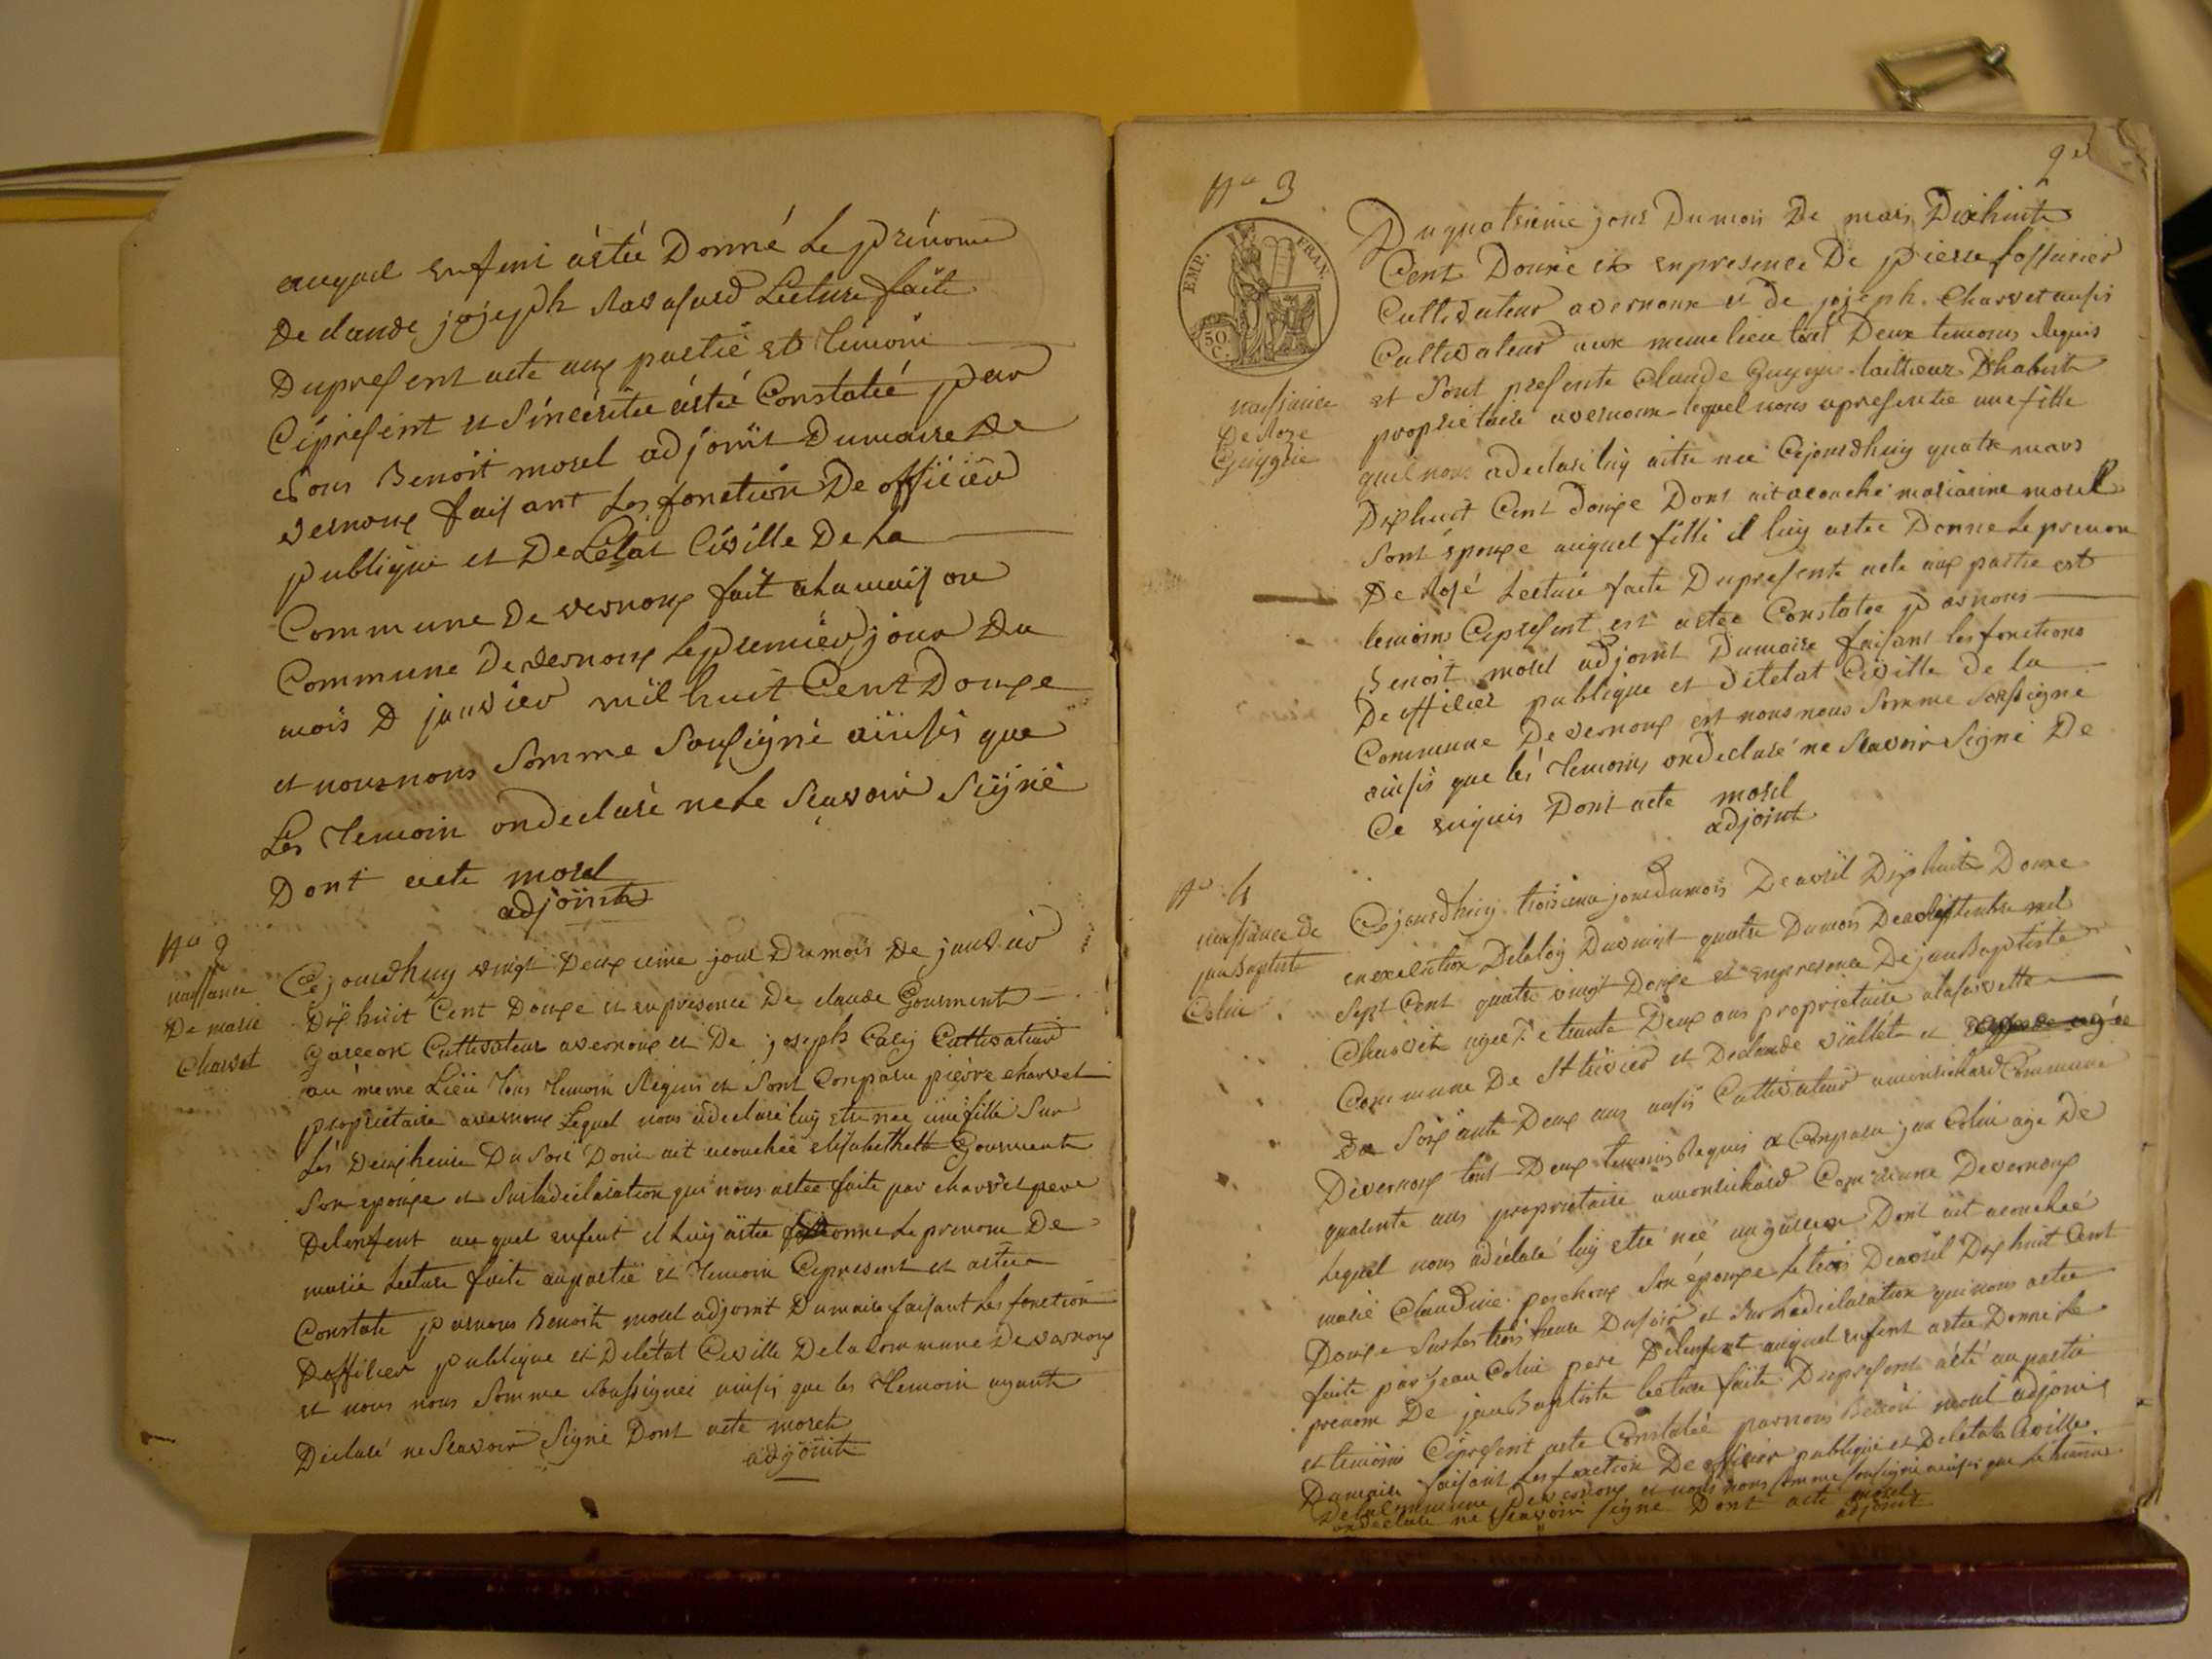 auquel enfent àstée Donné Le prénome
De claude jojeph Ravasard Lecture faite
Dupresent acte aux partie et Temoin
Ciprésent et Sincéritée àstée Constatée par
Nous Benoit morel adjoint Dumaire De
vernoux faisant Les fonction De officier
publique et De Létat Civille De La
Commune De vernoux fait a La maison
Commune De vernoux Le premier jour Du
mois D janvier mil huit Cent Douze
et nous nous Somme Sousigné ainssis que
Les Temoin on declaré ne Le Scavoir Signé
Dont acte morel
adjoint
No 2
naissance
De marie
Charvet
Cejourdhuy vingt Deuxieme jour Dumois De janvier
Dix huit Cent Douze et en presence De claude Gourment
Garcon Cultivateur avernoux et De joseph Caly Cultivateur
au meme Lieu Tous Temoin Réquis et Sont Conparu pierre charvet
propriétaire avernoux Lequel nous adeclaré luy etre née une fille Sur
Les Deux heure Du Soir Dont ait acouchée elisabethe Gourment
Son epouze et Surladeclaration qui nous astee faite par charvet pere
Delenfent au quel enfent il Luy àstée Donne Le prenom De
marie Lecture faite aupartie et Temoin Cipresent et astée
Constaté par nous Benoit morel adjoint Dumaire faisant Les fonction
Dofficier publique et Delétat Civille Dela Commune De vernoux
et nous nous Somme Soussignés ainsis que les Temoin ayant
Déclaré ne Scavoir Signé Dont acte morel
adjoint
2e
No 3
EMP. FRAN.
50 C.
naissance
De Roze
Guyguie
Du quatrieme jour Dumois De mars Dixhuite
Cent Douze et enpresence De pierre fossurier
Cultivateur avernoux et de jojeph Charvet aussis
Cultivateur aux meme lieu tout Deux temoins Requis
et Sont presente Claude Guygue tailleur Dhabit
propriétaire avernoux lequel nous apresentée une fille
quel nous adeclaré luy aitre née Cejourdhuy quatre mars
Dixhuit Cent Douze Dont ait acouché marianne morel
Sont épouze auquel fille il luy astée Donné Le prenom
De Rosé Lecture faite Dupresente acte aux partie et
temoins Cepresent est astée Constatée par nous
Benoit morel adjoint Dumaire faisant les fonctions
De officier publique et Detetat Civille De la
Commune De vernoux est nous nous Somme Soussigné
ainsis que lés Temoins on declaré ne Scavoir Signé De
Ce requis Dont acte morel
adjoint
No 4
naissance de
jeanBaptiste
Colin
Cejourdhuy troisieme jour dumois De avril Dixhuite Douze
en execution Delaloy Du vingt quatre Dumois De septembre mil
Sept Cent quatre vingt Douze et enpresence De jeanBaptiste
Charvet agée De trente Deux ans propriétaire
Commune De St trivier et Declaude viallet et
De Soixante Deux ans aussis Cultivateur Commune
Devernoux tout Deux temoins Requis a Conparu jean Colin agé De
quarente ans propriétaire Commune Devernoux
Lequel nous adéclaré luy etre née un garcon Dont ait acouchée
marie Claudine perchoux Son épouze Le trois De avril Dix huit Cent
Douze Sur Les trois heure Dusoir et Sur Ladeclaration qui nous astée
faite par jean Colin pere Delenfent auquel enfent astée Donné Le
prenom De jeanBaptiste lecture faite Dupresent acté aupartie
et temoins Cipresent aste Constatée par nous Benoit morel adjoint
Dumaire faisant Les fonction De officier publique et Deletat Civille
Delacommune Devernoux et nous nous Somme Sousigné ainsis que Le temoins
ondeclaré ne Scavoir signe Dont acte morel
adjoint